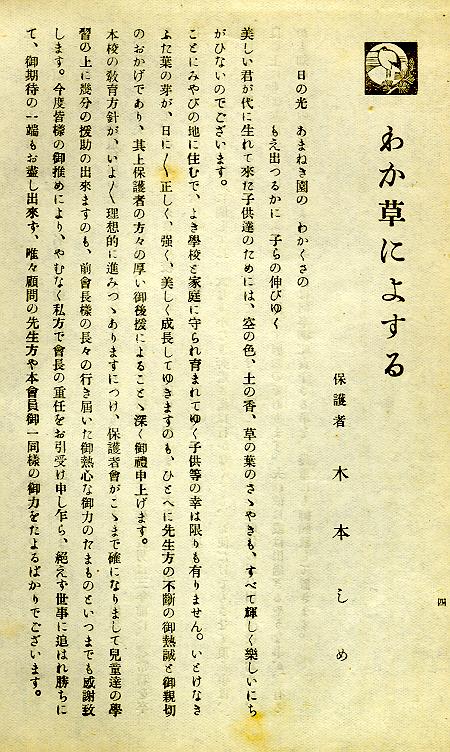 わか草によする
保護者 木本しめ
日の光 あまねき園の わかくさの
もえ出つるかに 子らの伸びゆく
美しい君が代に生れて來た子供達のためには、空の色、土の香、草の葉のさゝやきも、すべて輝しく樂しいにち
がひないのでございます。
ことにみやびの地に住むで、よき學校と家庭に守られ育まれてゆく子供等の幸は限りも有りません。いとけなき
ふた葉の芽が、日に〱正しく、强く、美しく成長してゆきますのも、ひとへに先生方の不斷の御熱誠と御親切
のおかげであり、其上保護者の方々の厚い御後援によることゝ深く御禮申上げます。
本校の敎育方針が、いよ〱理想的に進みつゝありますにつけ、保護者會がこゝまで確になりまして兒童達の學
習の上に幾分の援助の出來ますのも、前會長樣の長々の行き届いた御熱心な御力のたまものといつまでも感謝致
します。今度皆樣の御推めにより、やむなく私方で會長の重任をお引受け申し乍ら、絕えず世事に追はれ勝ちに
て、御期待の一端もお盡し出來ず、唯々顧問の先生方や本會員御一同樣の御力をたよるばかりでございます。
四